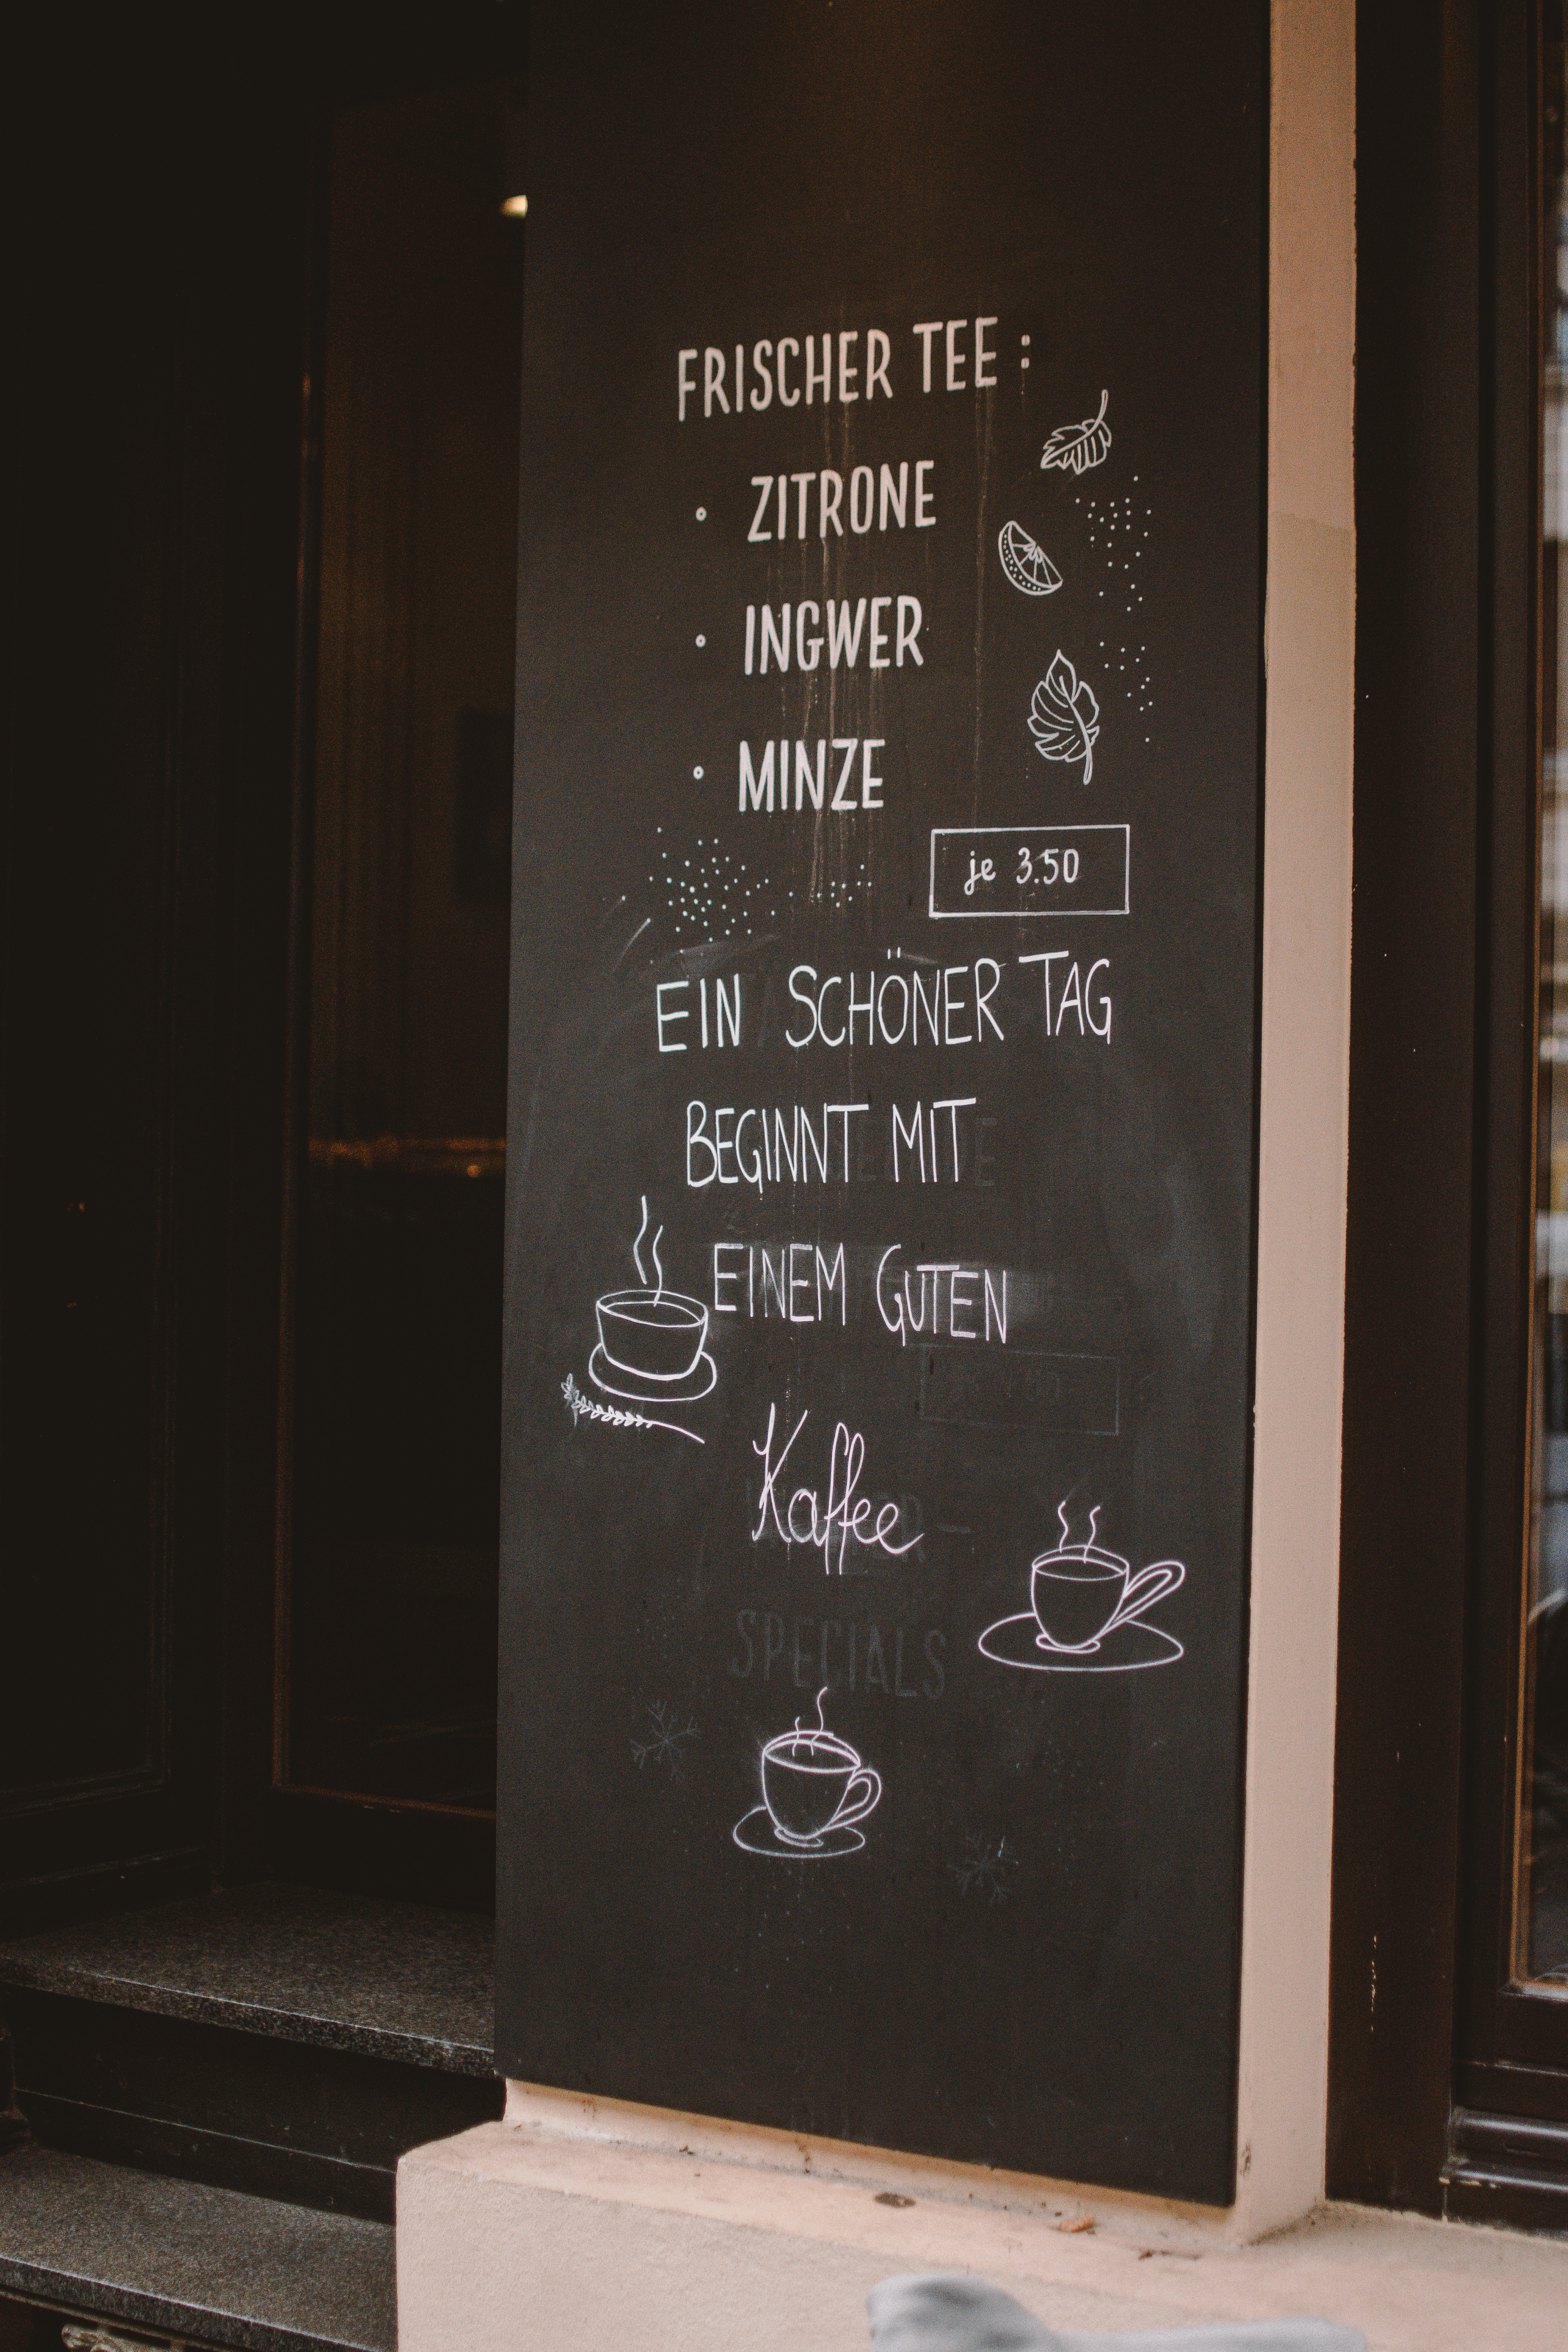 FRISCHER TEE:
ZITRONE
INGWER
MINZE
je 3.50
EIN SCHÖNER TAG
BEGINNT MIT
EINEM GUTEN
Kaffee
SPECIALS